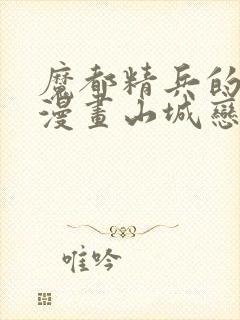 魔都精兵的
漫畫山城戀
唯吟